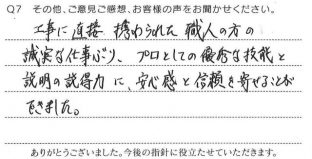 Q7 その他、ご意見ご感想、お客様の声をお聞かせください。
工事に直接 携わられた 職人の方の
誠実な仕事ぶり、プロとしての優秀な技能と
説明の説得力に、安心感と信頼を寄せることが
できました。
ありがとうございました。今後の指針に役立たせていただきます。